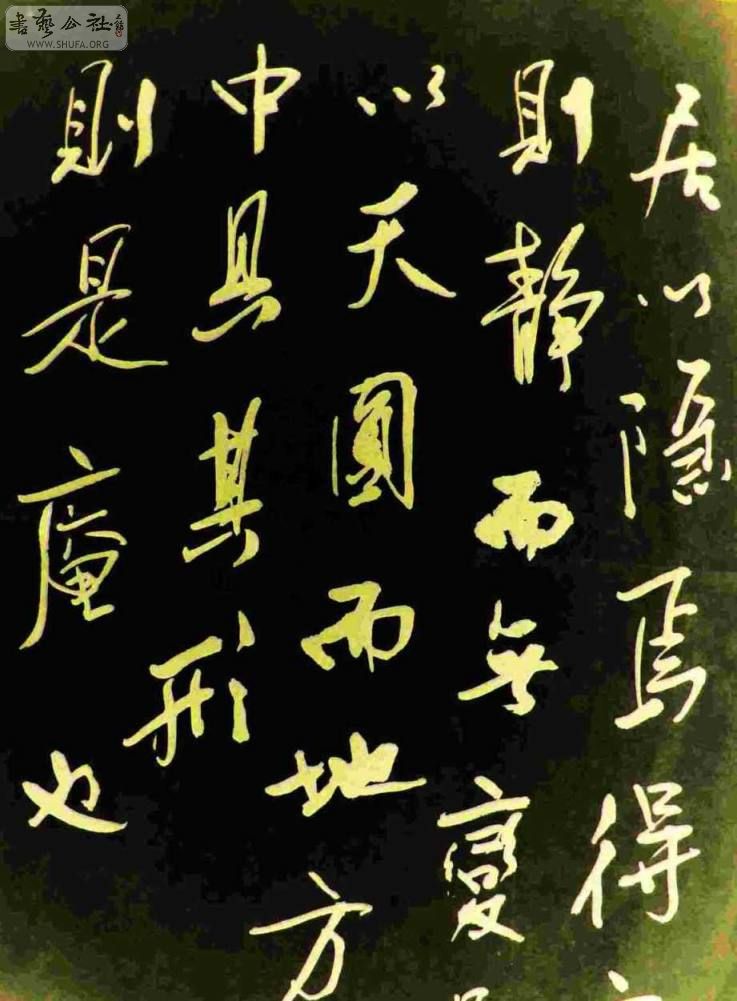 居以隱焉得
則靜而無變
以天圓而地方
中具其形
則是庵也
書藝公社
WWW.SHUFA.ORG